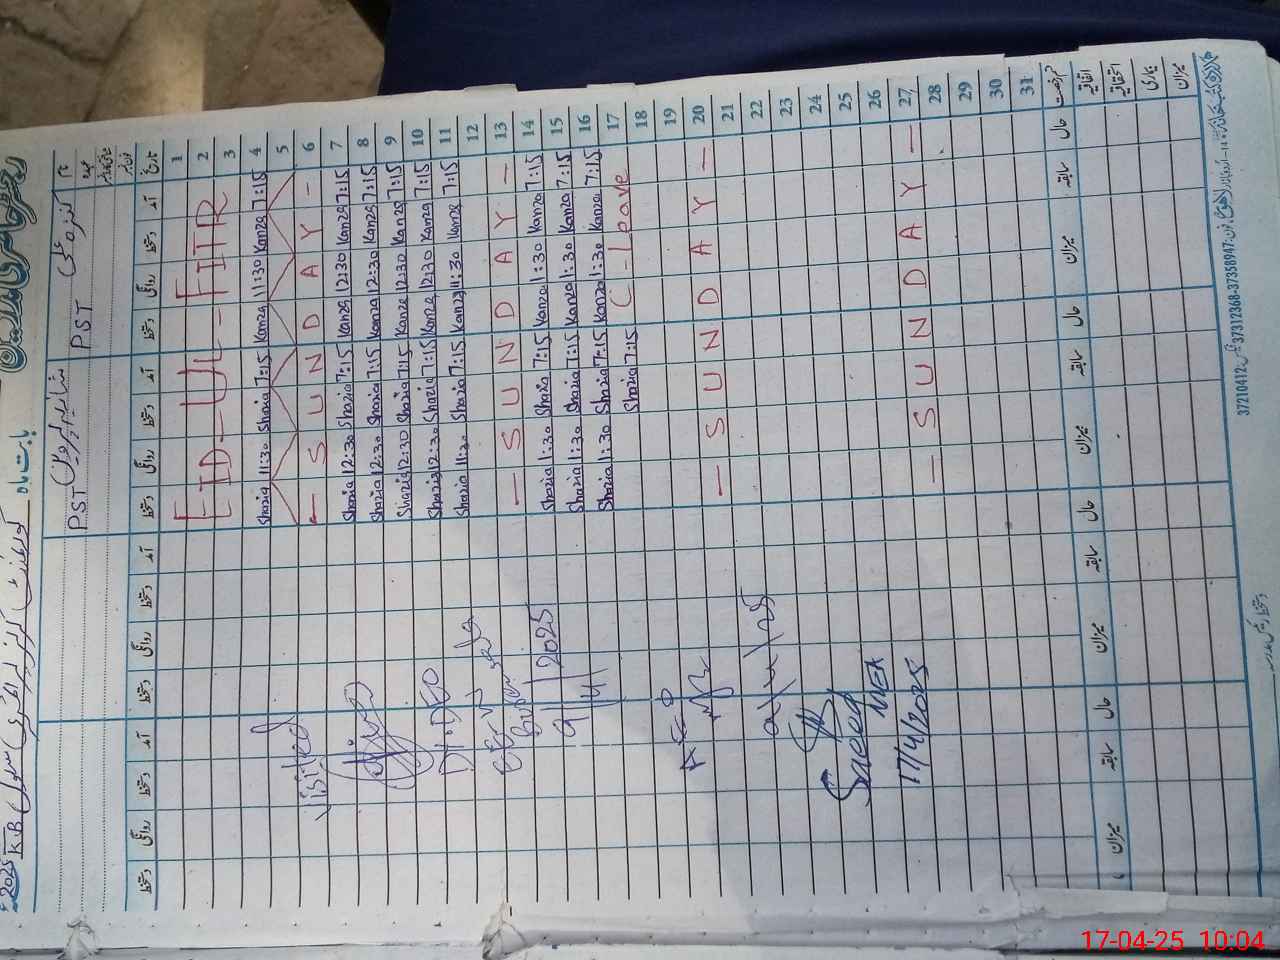 رجسٹر حاضری مدرسین
بابت ماہ
2025
K.B گورنمنٹ گرلز پرائمری سکول
نام کنزہ علی شازیہ پروین
عہدہ PST PST
تاریخ آمد دستخط روانگی دستخط آمد دستخط روانگی دستخط آمد دستخط روانگی دستخط آمد دستخط روانگی دستخط
1
2 EID-UL-FITR
3
4 7:15 Kanza 11:30 Kanza 7:15 Shazia 11:30 Shazia
5
6 - SUNDAY -
7 7:15 Kanza 12:30 Kanza 7:15 Shazia 12:30 Shazia
8 7:15 Kanza 12:30 Kanza 7:15 Shazia 12:30 Shazia
9 7:15 Kanza 12:30 Kanza 7:15 Shazia 12:30 Shazia
10 7:15 Kanza 12:30 Kanza 7:15 Shazia 12:30 Shazia
11 7:15 Kanza 11:30 Kanza 7:15 Shazia 11:30 Shazia
12
13 - SUNDAY -
14 7:15 Kanza 1:30 Kanza 7:15 Shazia 1:30 Shazia
15 7:15 Kanza 1:30 Kanza 7:15 Shazia 1:30 Shazia
16 7:15 Kanza 1:30 Kanza 7:15 Shazia 1:30 Shazia
17 C-Leave 7:15 Shazia
18
19
20 - SUNDAY -
21
22
23
24
25
26
27 - SUNDAY -
28
29
30
31
Visited
Dy.DEO
9/4/2025
AEO
Saeed
MEA
17/4/2025
حال سابقہ میزان حال سابقہ میزان حال سابقہ میزان حال سابقہ میزان
اتفاقیہ
استحقاقیہ
بیماری
میزان
37210412 37312368-37358947
17-04-25 10:04